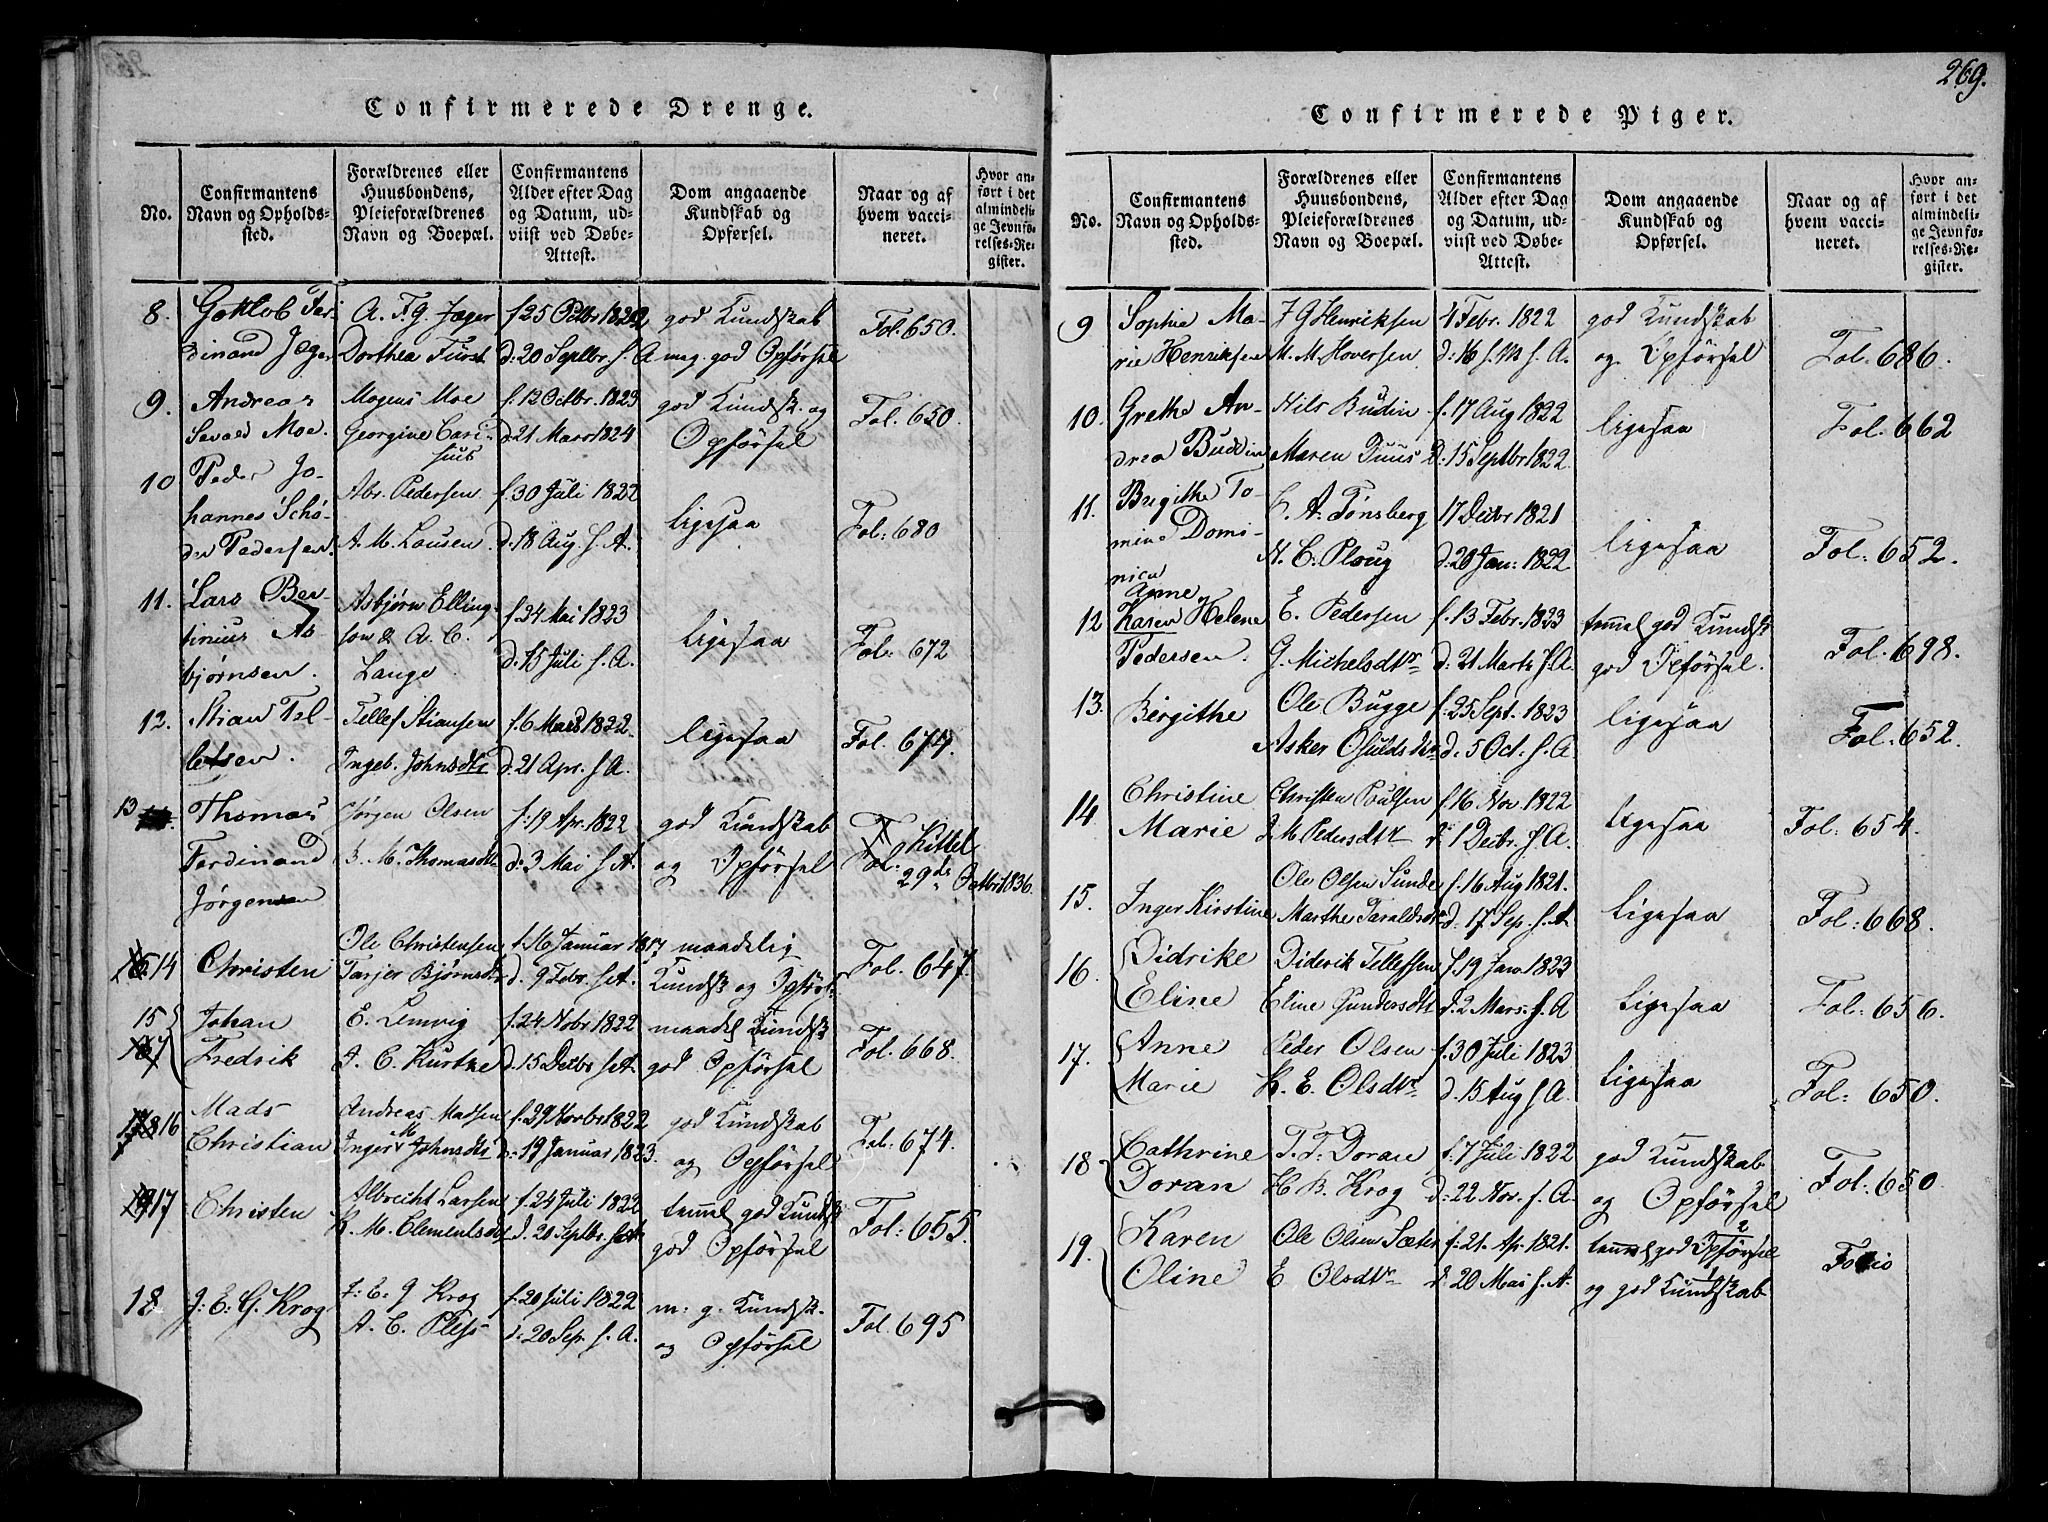 Confirmerede Drenge.
No.
Confirmantens
Navn og Opholds-
sted.
Forældrenes eller
Huusbondens,
Pleieforældrenes
Navn og Boepæl.
Confirmantens
Alder efter Dag
og Datum, ud-
viist ved Døbe-
Attest.
Dom angaaende
Kundskab og
Opførsel.
Naar og af
hvem vacci-
neret.
Hvor an-
ført i det
almindeli-
ge Jevnfø-
relses-Re-
gister.
8.
Gottlob Fer
dinand Jæger
A. F. G. Jæger
Dorthea Fürst
f. 25
d. 20 Septbr. s. A
god Kundskab
meg. god Opførsel
Fol. 650.
9.
Andreas
Sevald Moe.
Mogens Moe
Georgine Cari-
sius
f. 12 Octbr. 1823
d. 21 Mars 1824
god Kundsk. og
Opførsel
Fol. 650.
10
Peder Jo-
hannes Schø-
der Pedersen.
Abr. Pedersen
A. M. Lousen
f. 30 Juli 1822
d. 18 Aug. s. A.
ligesaa
Fol: 680
11.
Lars Ber
tinius As
bjørnsen.
Asbjørn Elling-
sen & A. C.
Lange
f. 24 Mai 1823
d. 15 Juli s. A.
ligesaa
Fol: 672
12.
Stian Tel-
lefsen.
Tellef Stiansen
Ingeb. Johnsdtr
f. 6 Mars 1822.
d. 21 Apr. s A.
ligesaa
Fol. 674.
13
Thomas
Ferdinand
Jørgensen
Jørgen Olsen
B. M. Thomasdtr
f. 19 Apr. 1822
d. 3 Mai s A.
god Kundskab
og Opførsel
Fol. Kittel
29de Octbr 1836.
14
Christen
Ole Christensen
Tarjer Bjørnsdtr
f. 16 Januar 1817
d. 9 Febr. s. A.
maadelig
Kundsk og Opførs
Fol. 647.
15
Johan
Fredrik
E. Lemvig
A. C. Kurtze
f. 24 Nobr. 1822
d. 15 Decbr s. A.
maadel Kundsk
god Opførsel
Fol. 668.
16
Mads
Christian
Andreas Madsen
Inger M Johnsdtr
f. 29 Novbr 1822
d: 19 Januar 1823.
god Kundskab
og Opførsel
Fol. 674.
17
Christen
Albrecht Larsen
K. M. Clementsdtr
f. 24 Juli 1822
d. 20 Septbr. s A
temmel god Kundsk
god Opførsel
Fol: 655.
18
J: E: G. Krog
J: E. G Krog
A. C. Pless
f. 20 Juli 1822
d: 20 Sep. s. A.
m: g. Kundsk.
og Opførsel
Fol. 695
269.
Confirmerede Piger.
No.
Confirmantens
Navn og Opholds-
sted.
Forældrenes eller
Huusbondens,
Pleieforældrenes
Navn og Boepæl.
Confirmantens
Alder efter Dag
og Datum, ud-
viist ved Døbe-
Attest.
Dom angaaende
Kundskab og
Opførsel.
Naar og af
hvem vacci-
neret.
Hvor an-
ført i det
almindeli-
ge Jevnfø-
relses-Re-
gister.
9
Sophie Ma-
rie Henriksen
J G Henriksen
M. M. Hoversen
4 Febr. 1822
d: 16 s. M s. A.
god Kundskab
og Opførsel
Fol: 686.
10.
Grethe An-
drea Buddin
Nils Budin
Maren Duus
f. 17 Aug 1822
d: 15 Septbr 1822.
ligesaa
Fol. 662
11.
Birgithe To-
mine Domi-
nica
A. Tønsberg
N. C. Ploug
17 Decbr 1821
d: 20 Jan: 1822
ligesaa
Fol: 652.
12
Anne
Karen Helene
Pedersen.
E. Pedersen
G. Michelsdtr
f. 13 Febr. 1823
d: 21 Marts s. A.
temmel god Kundsk
god Opførsel.
Fol: 698.
13.
Birgithe
Ole Bugge
Asker Osulds dtr
f. 25 Sept. 1823
d. 5 Oct. s. A
ligesaa
Fol: 652.
14
Christine
Marie
Christen Poulsen
J. M Pedersdtr
f. 16 Nov 1822
d: 1 Decbr. s A.
ligesaa
Fol: 654.
15.
Inger Kirstine
Ole Olsen Sunde
Marthe Taraldsdtr
f. 16 Aug 1821.
d. 17 Sep. s. A.
ligesaa
Fol: 668.
16.
Didrike
Eline
Diderik Tellefsen
Eline Gundersdtr
f. 19 Jan 1823
d. 2 Mars. s. A
ligesaa
Fol: 656.
17.
Anne
Marie
Peder Olsen
K. E. Olsdtr.
f. 30 Juli 1823
d. 15 Aug s. A.
ligesaa
Fol: 650.
18
Cathrine
Doran
T. T. Doran
H B. Krog
f. 7 Juli 1822
d: 22 Nov. s. A.
god Kundskab
og Opførsel
Fol: 650.
19.
Karen
Oline
Ole Olsen Sæter
E Olsdtr
f: 21. Ap. 1821.
d: 20 Mai s. A.
temmel god Opførsel 2
og god Kundskab 1
Folio